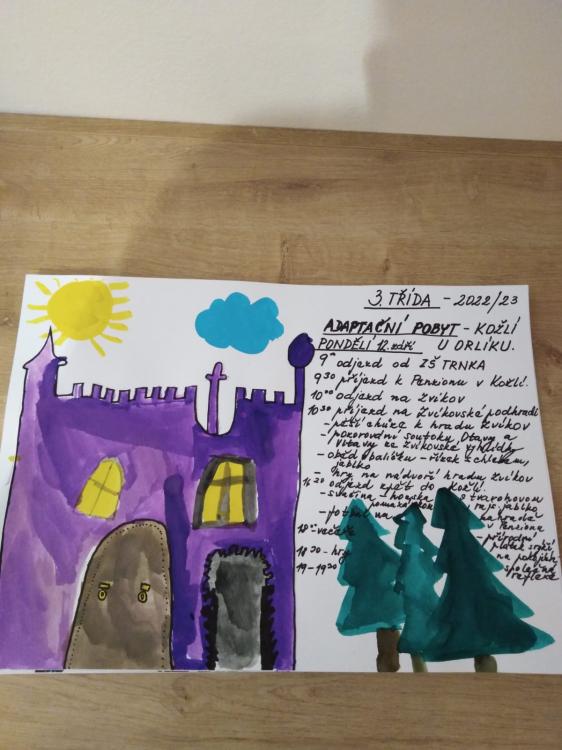 3. TŘÍDA - 2022/23
ADAPTAČNÍ POBYT - KOŽLÍ
PONDĚLÍ 12. září U ORLÍKU.
9⁰⁰ odjezd od ZŠ TRNKA
9 30 příjezd k Penzionu v Kožlí.
10⁰⁰ odjezd na Zvíkov
10 30 příjezd na Zvíkovské podhradí
- pěší chůze k hradu Zvíkov
- pozorování soutoku Otavy a
Vltavy ze Zvíkovské vyhlídky
- oběd v balíčku - řízek s chlebem,
jablko
- hry na nádvoří hradu Zvíkov
odjezd zpět do Kožlí.
- svačina - houska s tvarohovou
pomazánkou raj. jablko
- na zahradě
u Penzionu
18⁰⁰ večeře - přírodní
plátek sýrů
18 30 - hry na pokojích
19 - 19 30 společná
reflexe